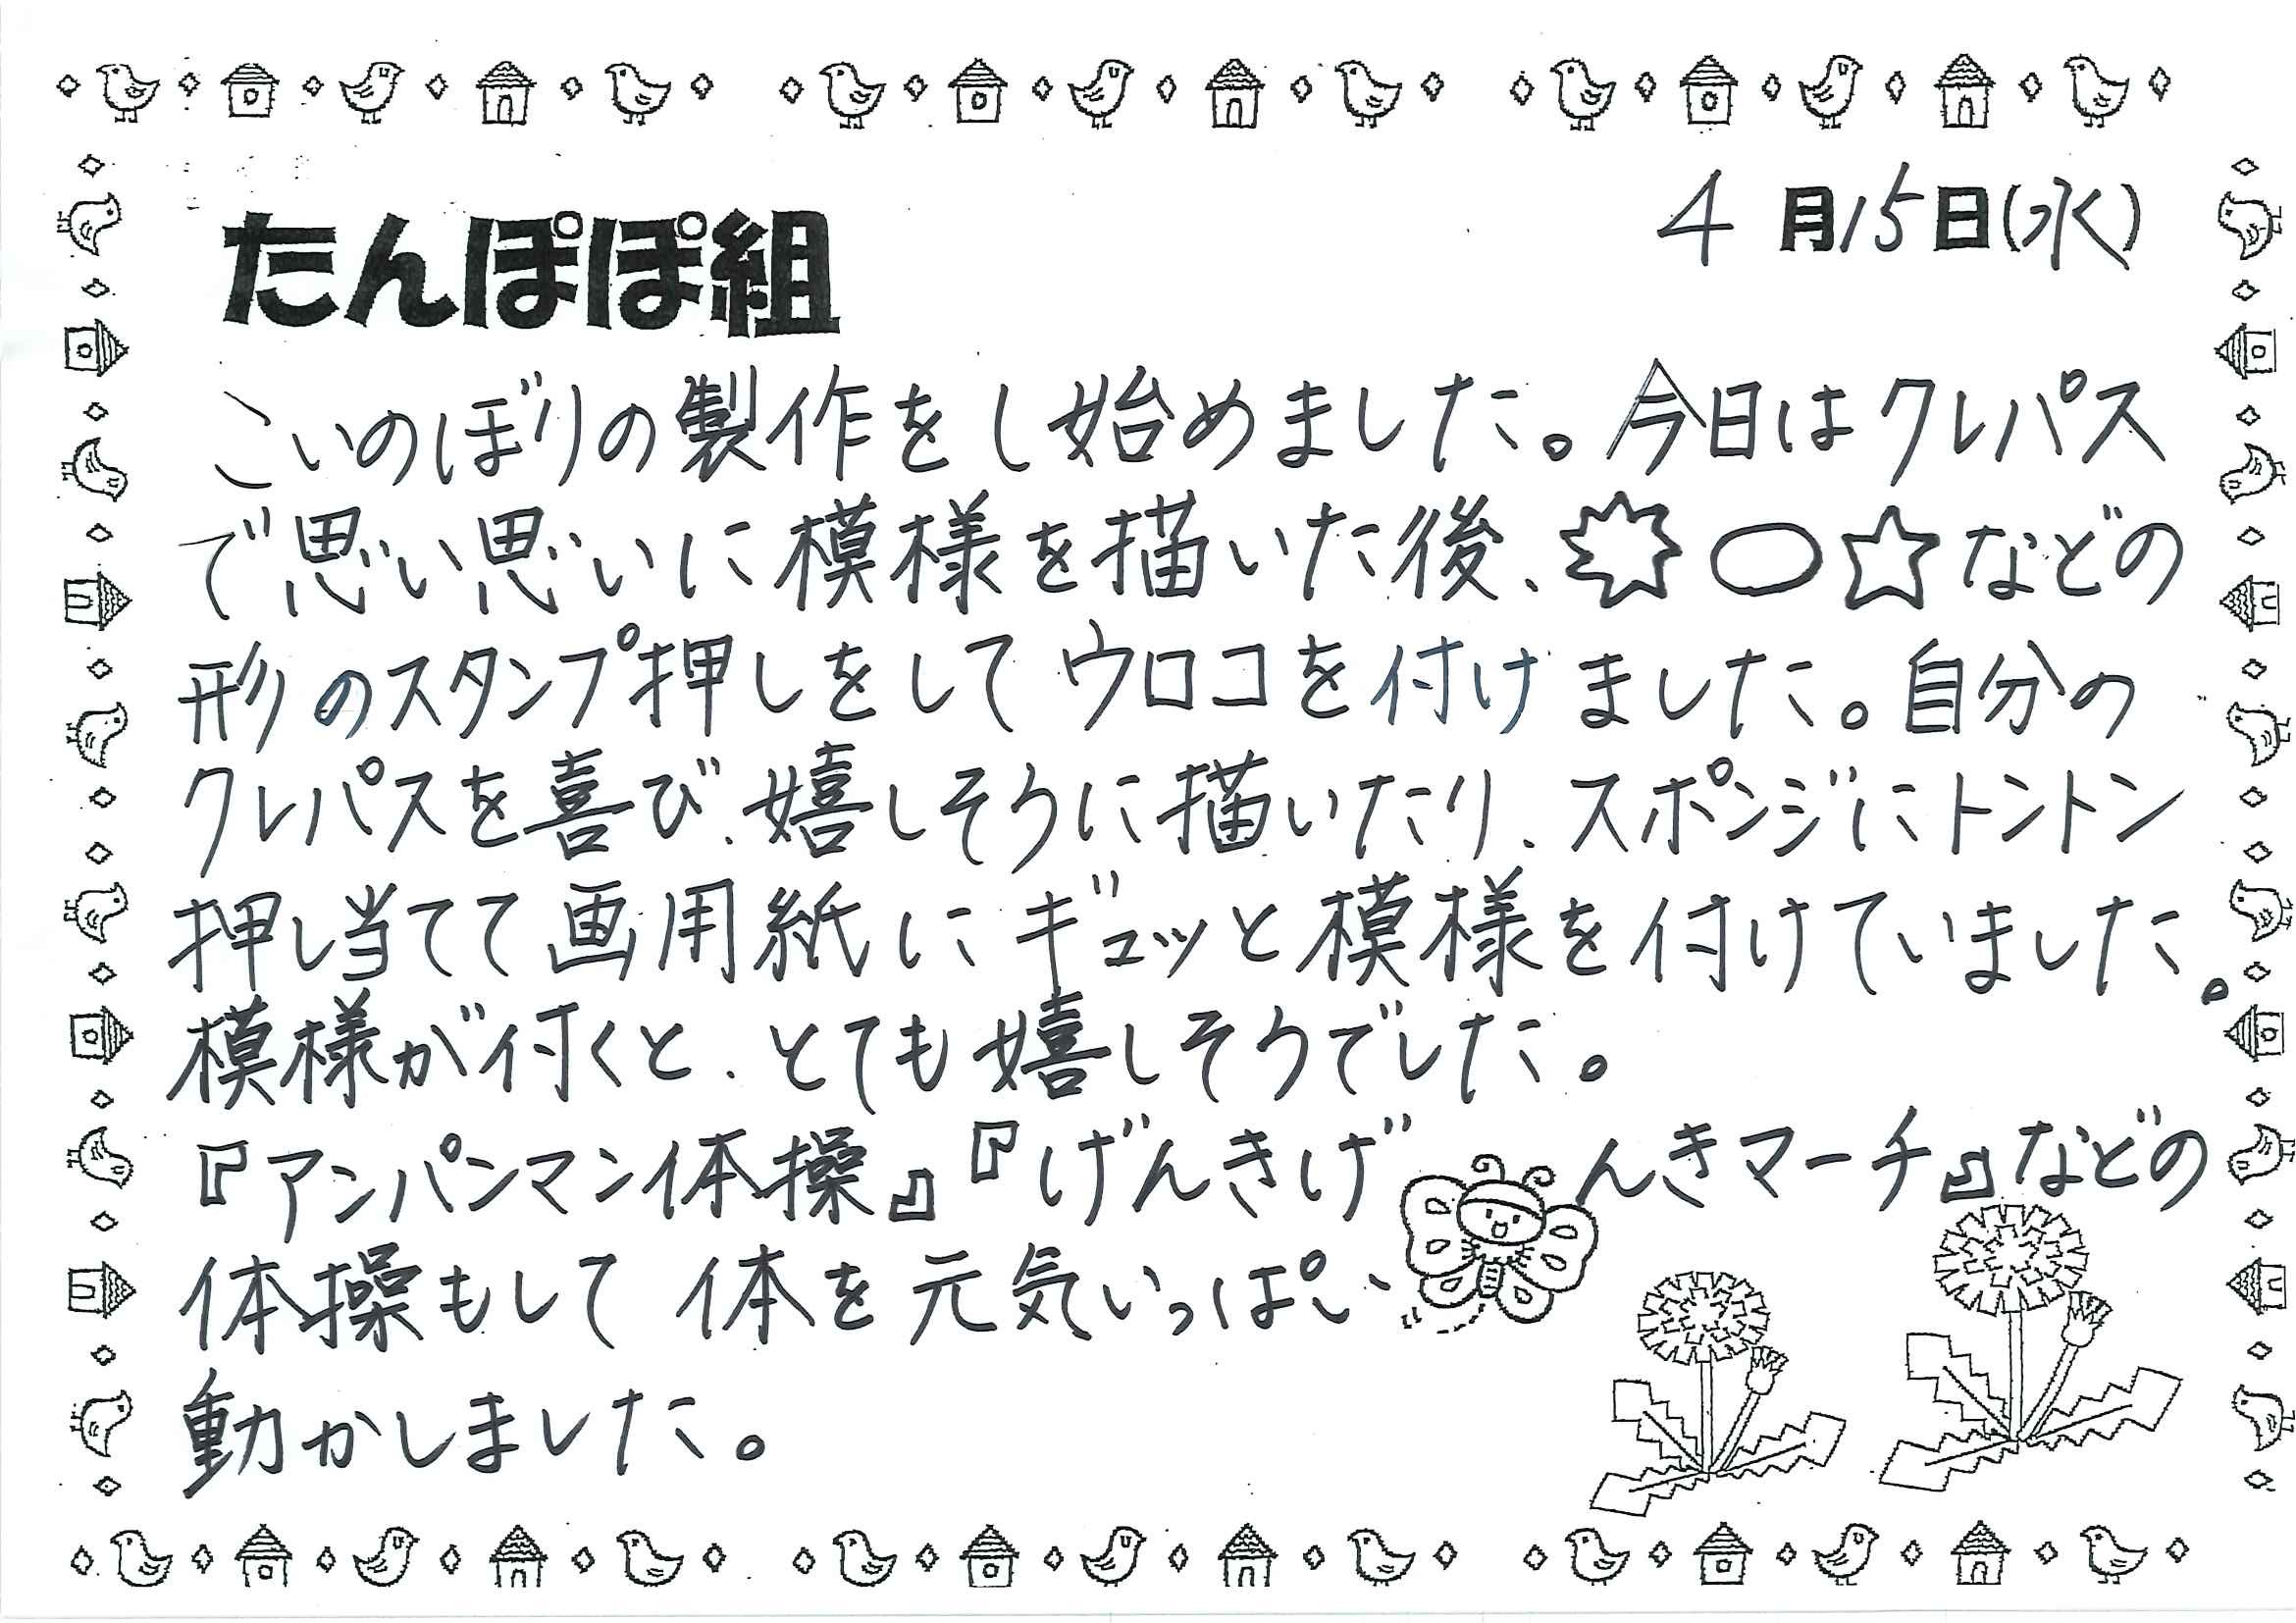 4月15日(水)
たんぽぽ組
こいのぼりの製作をし始めました。今日はクレパス
で思い思いに模様を描いた後、✹○☆などの
形のスタンプ押しをしてウロコを付けました。自分の
クレパスを喜び、嬉しそうに描いたり、スポンジにトントン
押し当てて画用紙にギュッと模様を付けていました。
模様が付くと、とても嬉しそうでした。
『アンパンマン体操』『げんきげんきマーチ』などの
体操もして体を元気いっぱい
動かしました。